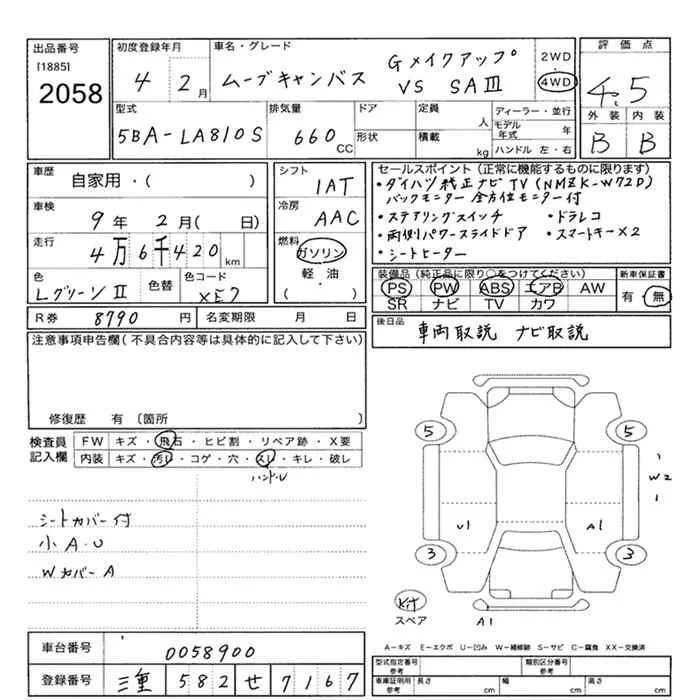 出品番号
[1885]
2058
初度登録年月
4 2月
車名・グレード
ムーブキャンバス
Gメイクアップ
VS SAⅢ
2WD
4WD
評価点
4.5
外装 内装
B B
型式
5BA-LA810S
排気量
660
CC
ドア
形状
定員
人
積載
kg
ディーラー・並行
モデル年式 年
ハンドル 左・右
車歴
自家用・( )
車検
9年 2月( 日)
走行
4万6千420km
色
Lグリーン Ⅱ
色替
色コード
XE7
シフト
1AT
冷房
AAC
燃料
ガソリン
軽・油
( )
セールスポイント(正常に機能するものに限ります)
・ダイハツ純正ナビTV(NMZK-W72D)
バックモニター全方位モニター付
・ステアリングスイッチ ・ドラレコ
・両側パワースライドドア ・スマートキー×2
・シートヒーター
装備品(純正品に限り○をつけてください)
PS PW ABS エアB AW
SR ナビ TV カワ
新車保証書
有・無
R券 8790円
名変期限 月 日
後日品
車両取説 ナビ取説
注意事項申告欄(不具合内容等は具体的に記入して下さい)
修復歴 有〔箇所 〕
検査員
記入欄
FW キズ・飛石・ヒビ割・リペア跡・X要
内装 キズ・汚レ・コゲ・穴・スレ・キレ・破レ
ハンドル
シートカバー付
小A・U
WカバーA
5 5
W2
U1 A1
3 3
スペア
A1
A-キズ E-エクボ U-凹み W-補修跡 S-サビ C-腐食 XX-交換済
車台番号
0058900
登録番号
三重 582 せ 7167
型式指定番号
参考
類別区分番号
参考
車庫証明用
参考
長さ cm
幅 cm
高さ cm